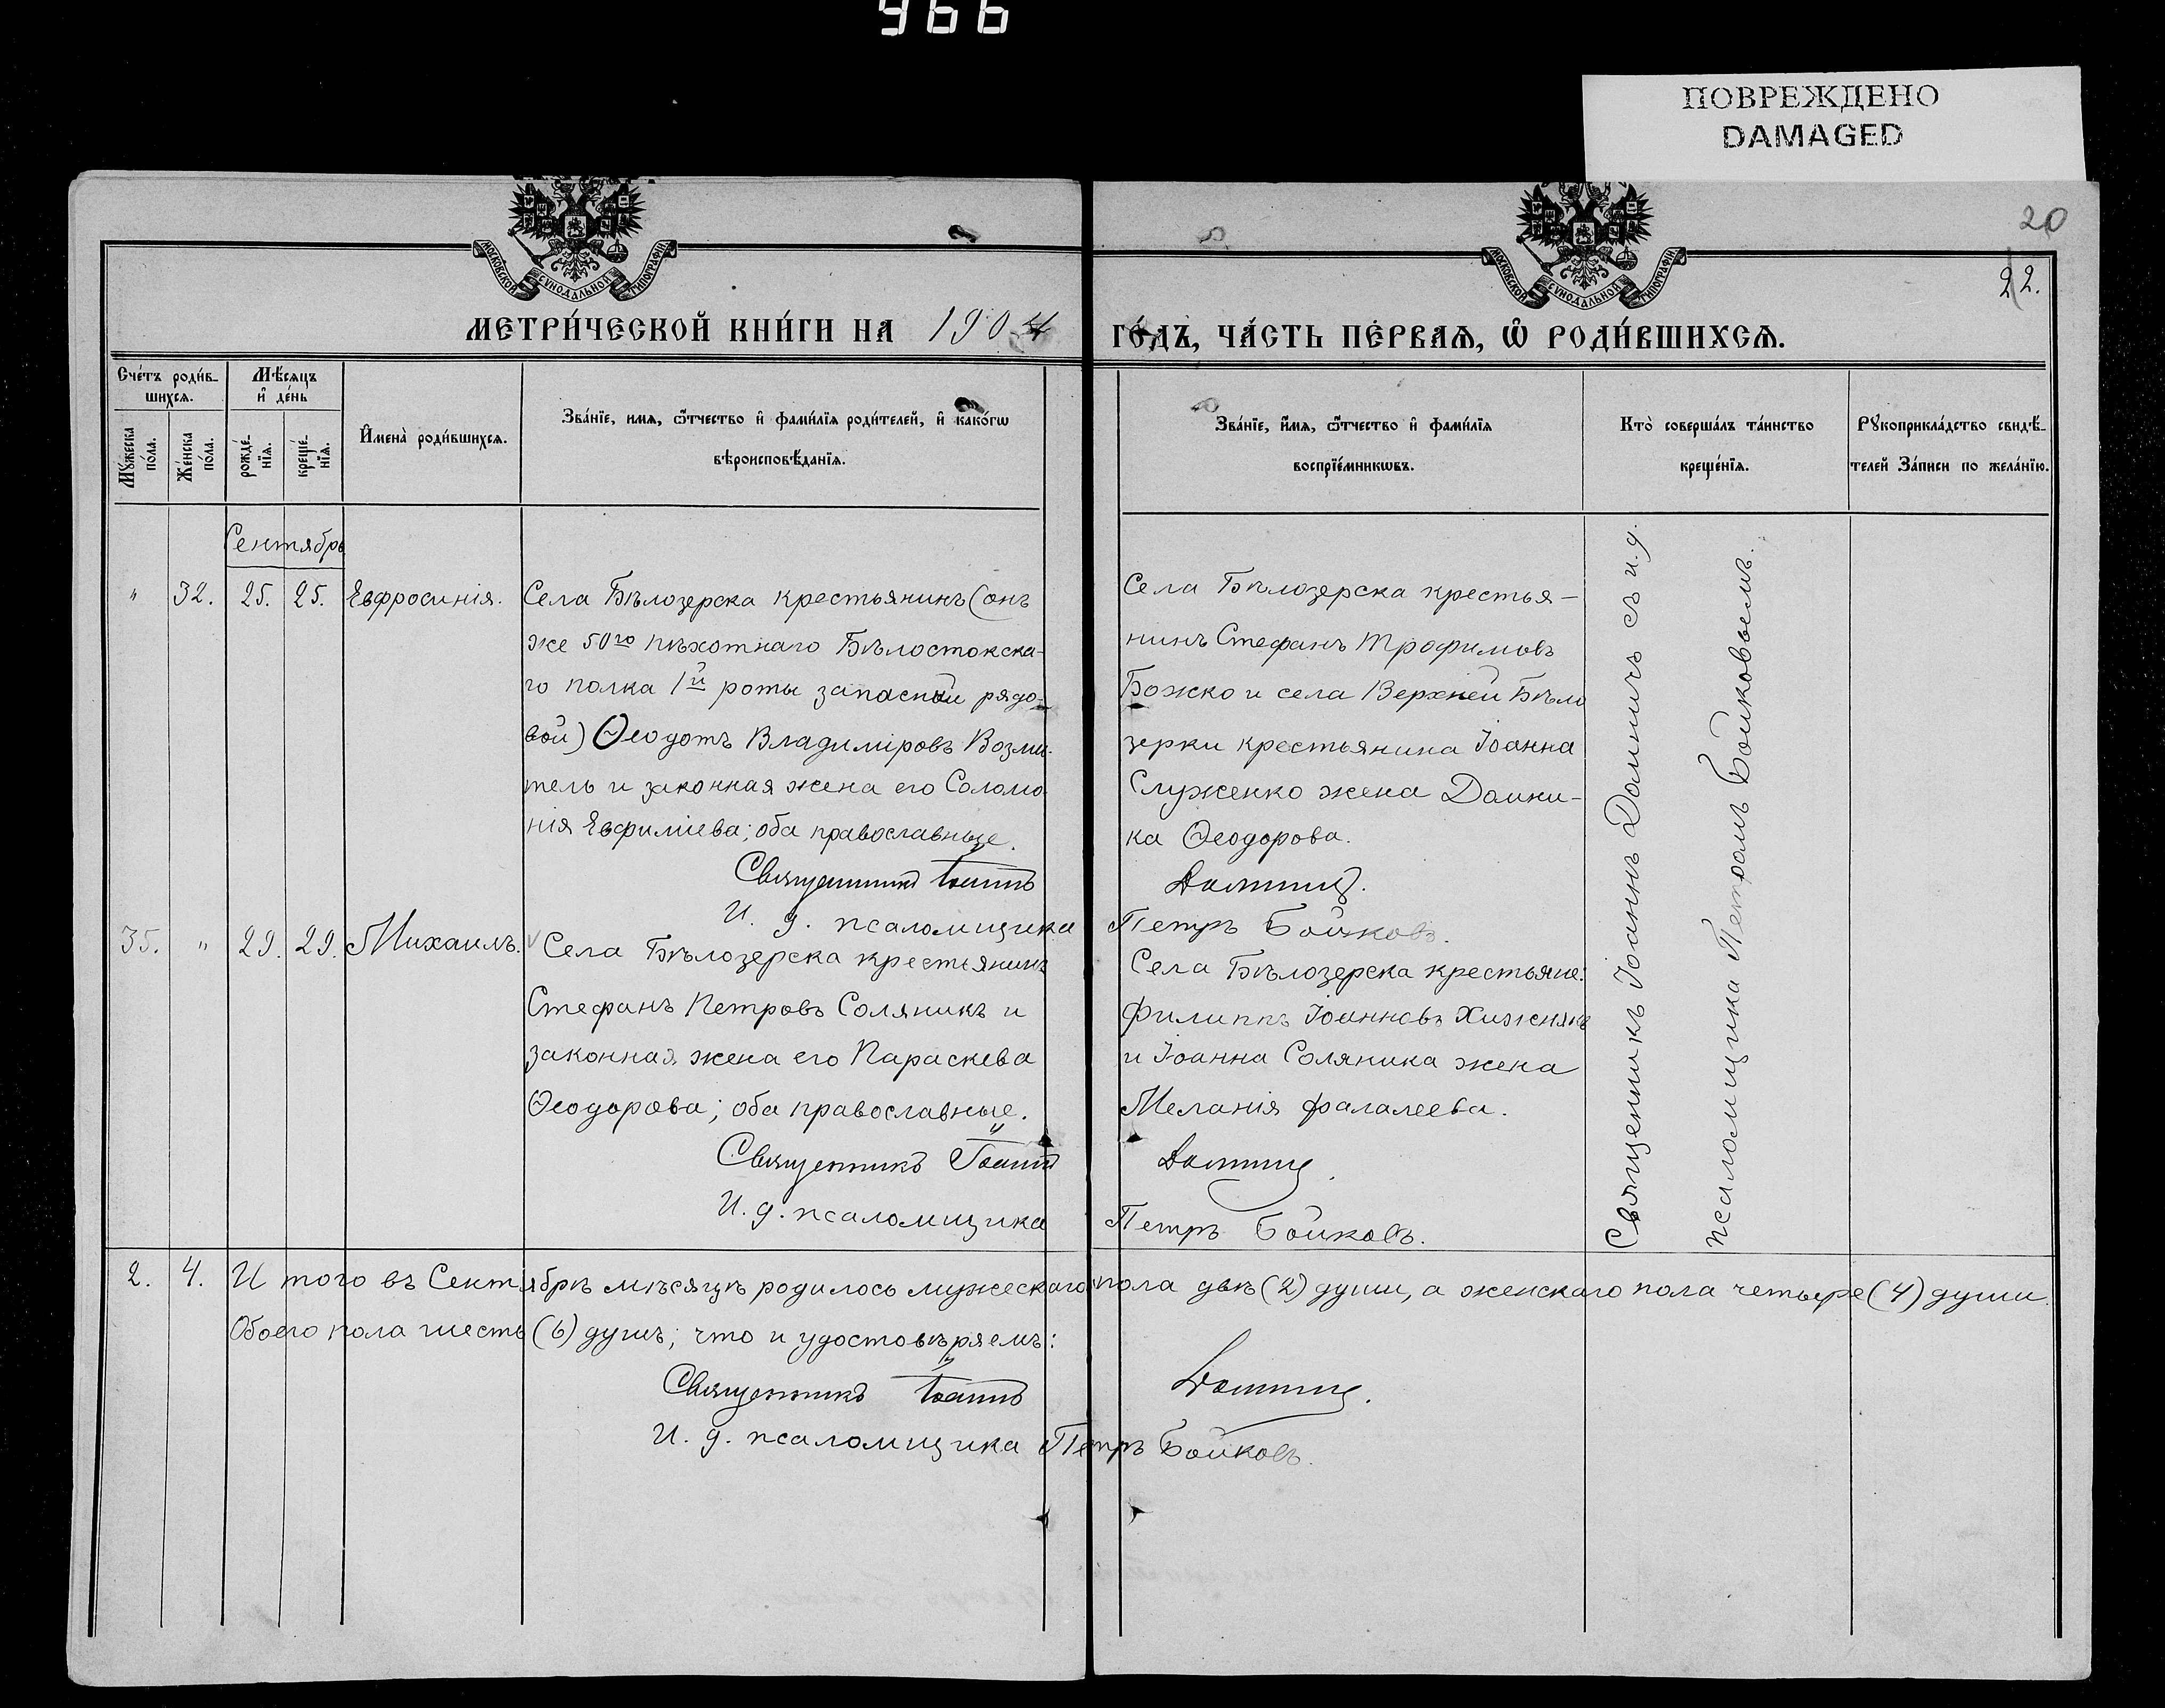 966
ПОВРЕЖДЕНО
DAMAGED
20
22.
МОСКОВСКОЙ СѴНОДАЛЬНОЙ ТИПОГРАФІИ
МОСКОВСКОЙ СѴНОДАЛЬНОЙ ТИПОГРАФІИ
МЕТРИ́ЧЕСКОЙ КНИ́ГИ НА 1904 ГО́ДЪ, ЧА́СТЬ ПЕ́РВАѦ, Ѽ РОДИ́ВШИХСѦ.
Сче́тъ роди́в-
шихсѧ.
Мѣ́сѧцъ
и҆ де́нь
Мꙋ́жеска
по́ла.
Же́нска
по́ла.
рожде́-
нїѧ.
креще́-
нїѧ.
И҆мена̀ роди́вшихсѧ.
Зва́нїе, имѧ, ѻ҆́тчество и҆ фами́лїѧ роди́телей, и҆ како́гѡ
вѣроисповѣ́данїѧ.
Зва́нїе, и҆́мѧ, ѻ҆́тчество и҆ фами́лїѧ
воспрїе́мникѡвъ.
Кто̀ соверша́лъ та́инство
креще́нїѧ.
Рꙋкоприкла́дство свидѣ́-
телей За́писи по жела́нїю.
Сентябрь
" 32. 25. 25. Евфросинія.
Села Бѣлозерска крестьянинъ (онъ
же 50го пѣхотнаго Бѣлостокска-
го полка 1й роты запасный рядо-
вой) Ѳеодотъ Владиміровъ Возми-
тель и законная жена его Соломо
нія Евфиміева; оба православные.
Священникъ Іоаннъ
И. д. псаломщика
Села Бѣлозерска крестья-
нинъ Стефанъ Трофимовъ
Божко и села Верхней Бѣло
зерки крестьянина Іоанна
Служенко жена Домни-
ка Ѳеодорова.
Доминич.
Петръ Бойковъ.
35. " 29. 29. Михаилъ.
Села Бѣлозерска крестьянинъ
Стефанъ Петровъ Соляникъ и
законная жена его Параскева
Ѳеодорова; оба православные.
Священникъ Іоаннъ
И. д. псаломщика
Села Бѣлозерска крестьяне:
Филиппъ Іоанновъ Хижнякъ
и Іоанна Соляника жена
Меланія Фалалеева.
Доминич.
Петръ Бойковъ.
Священникъ Іоаннъ Доминичъ съ и.д.
псаломщика Петромъ Бойковымъ.
2. 4. И того въ Сентябрѣ мѣсяцѣ родилось мужескаго пола двѣ (2) души, а женскаго пола четыре (4) души.
Обоего пола шесть (6) душъ; что и удостовѣряемъ:
Священникъ Іоаннъ Доминич.
И. д. псаломщика Петръ Бойковъ.